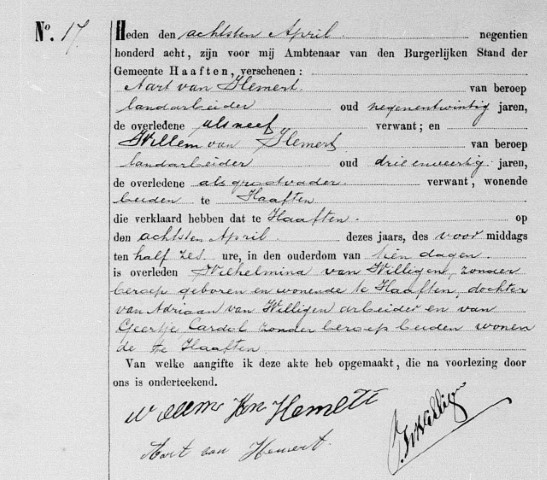 No. 17. Heden den achtsten April negentien
honderd acht, zijn voor mij Ambtenaar van den Burgerlijken Stand der
Gemeente Haaften, verschenen:
Aart van Hemert van beroep
landarbeider oud negenentwintig jaren,
de overledene als neef verwant; en
Willem van Hemert van beroep
landarbeider oud drieenveertig jaren,
de overledene als grootvader verwant, wonende
beiden te Haaften
die verklaard hebben dat te Haaften op
den achtsten April dezes jaars, des voor middags
ten half zes ure, in den ouderdom van tien dagen
is overleden Wilhelmina van Willigen, zonder
beroep geboren en wonende te Haaften, dochter
van Adriaan van Willigen arbeider en van
Geertje Cardol zonder beroep beiden wonen
de te Haaften
Van welke aangifte ik deze akte heb opgemaakt, die na voorlezing door
ons is onderteekend.
Hemert
Aart van Hemert.